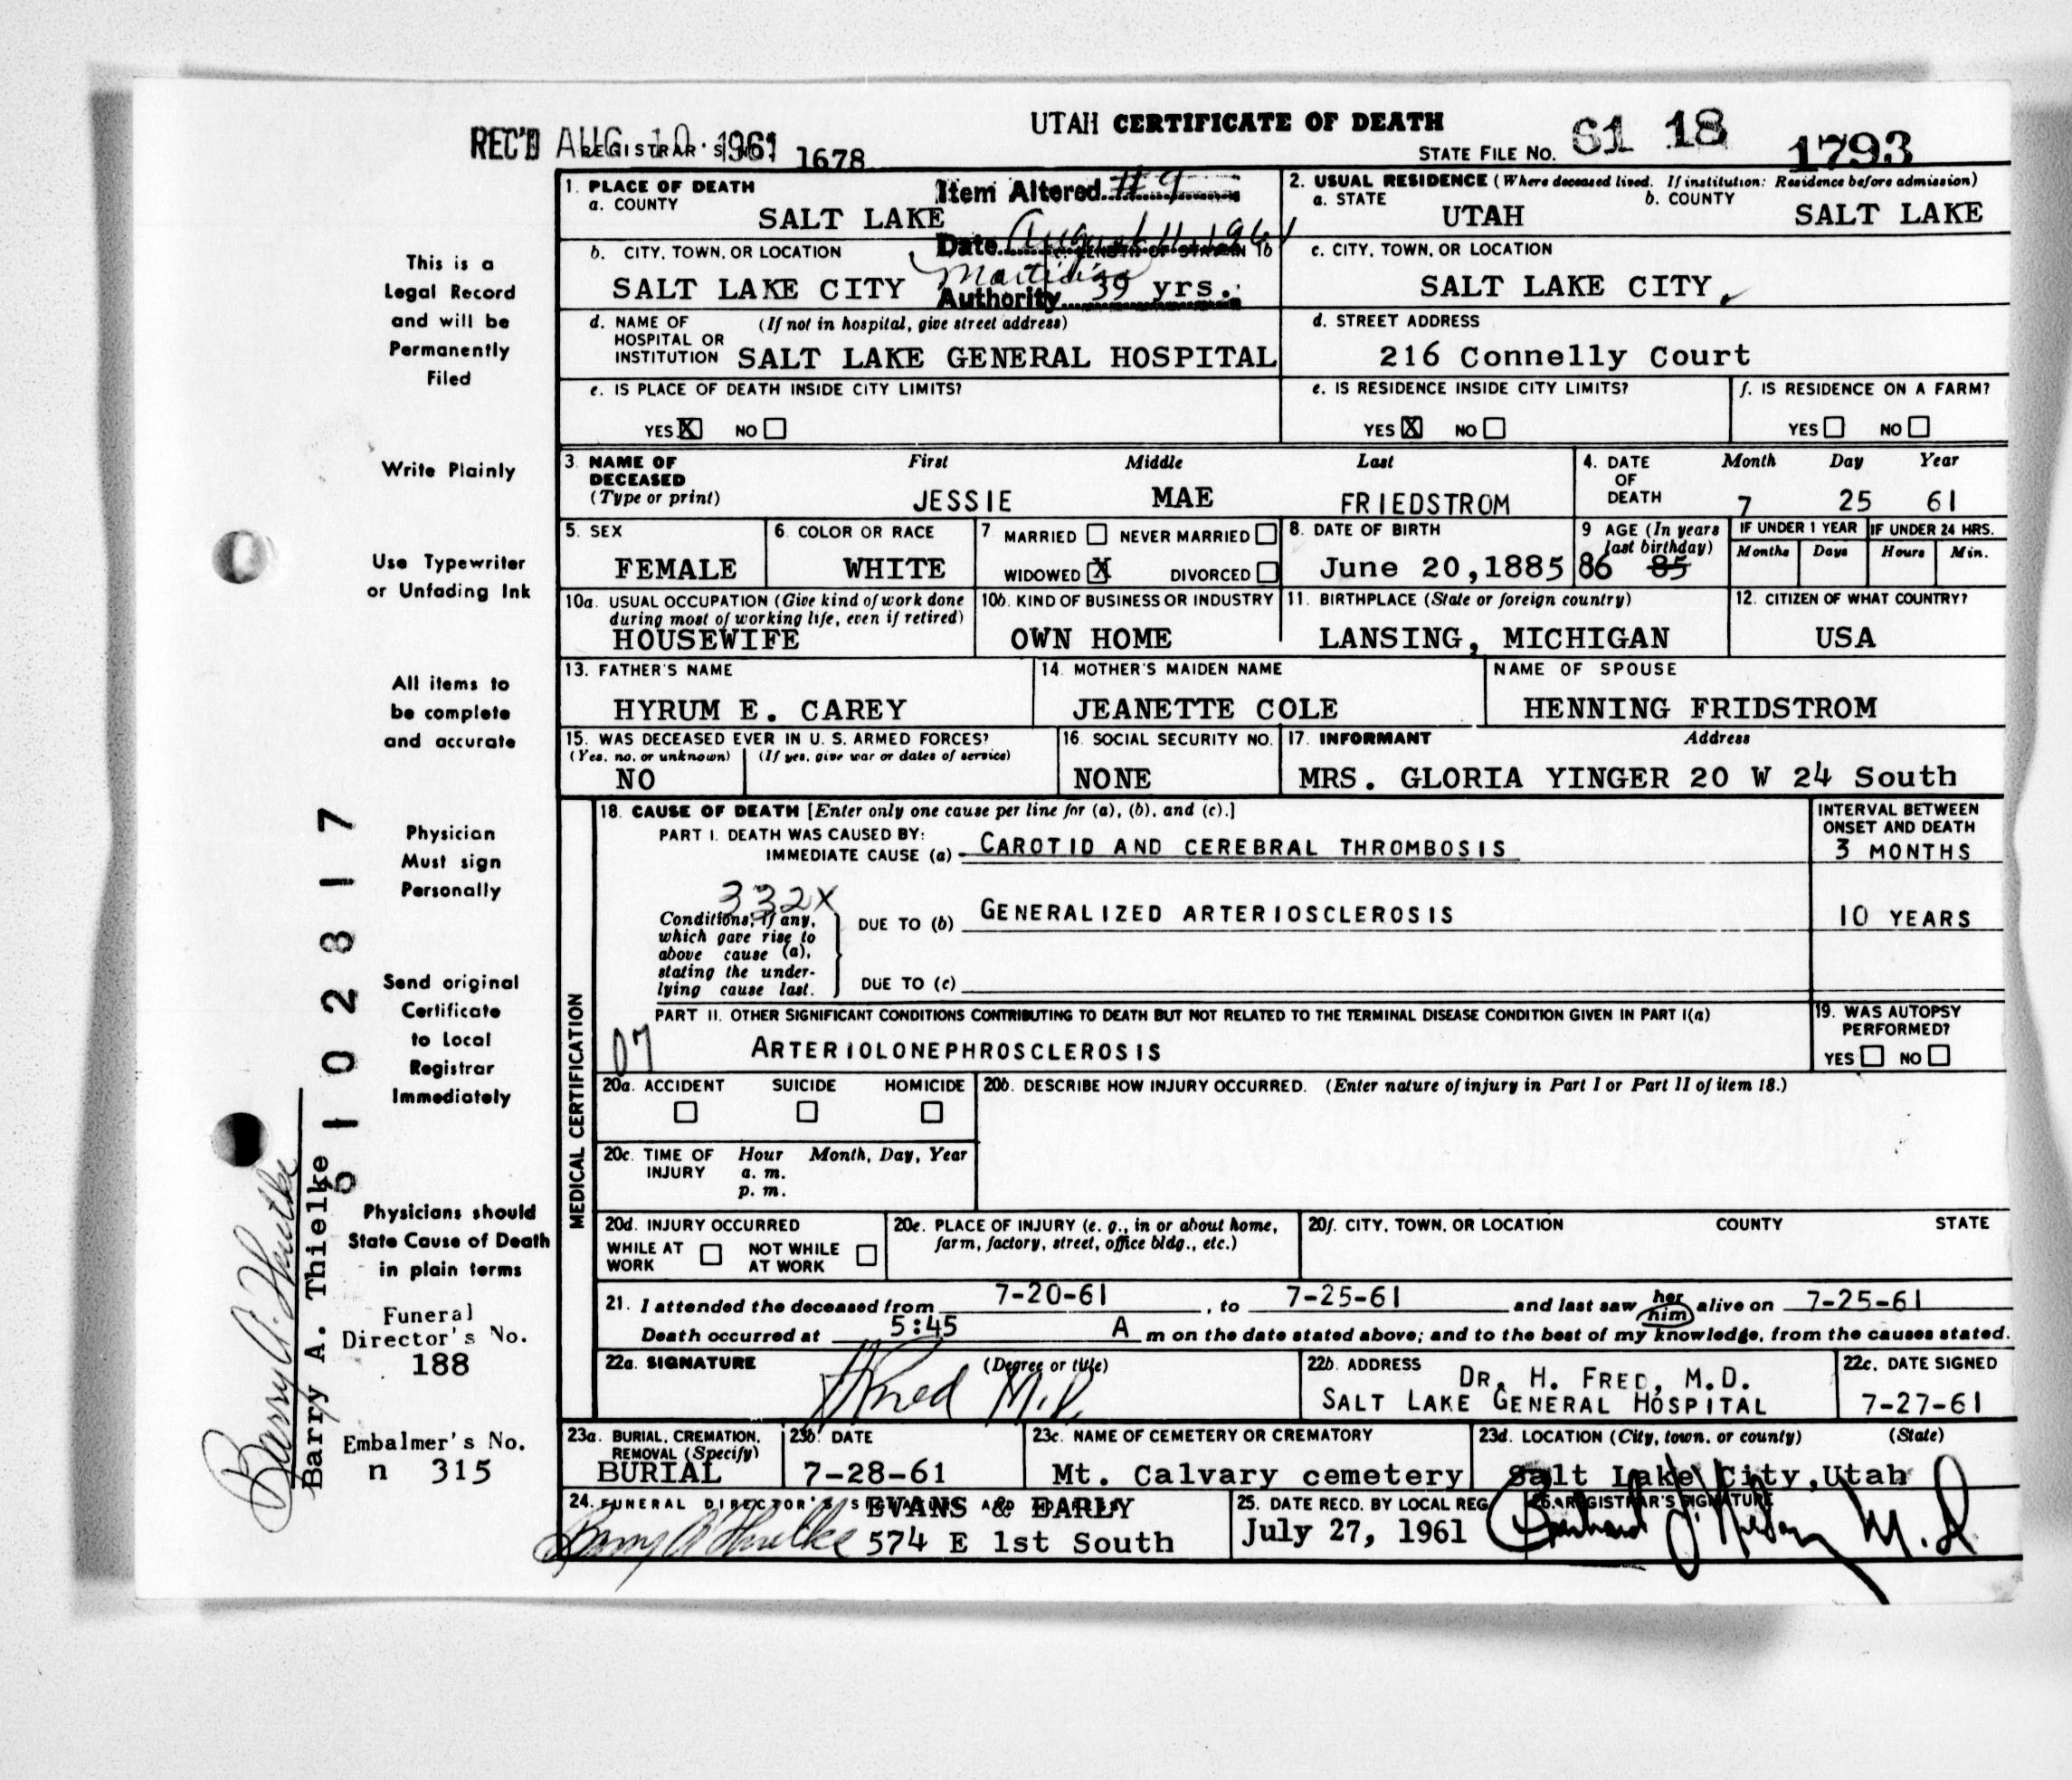 UTAH CERTIFICATE OF DEATH
REC'D AUG 10 1961
REGISTRAR'S 1678
STATE FILE NO. 61 18 1793
1. PLACE OF DEATH
a. COUNTY
SALT LAKE
Item Altered #9
Date August 11, 1961
Authority
2. USUAL RESIDENCE (Where deceased lived. If institution: Residence before admission)
a. STATE
UTAH
b. COUNTY
SALT LAKE
b. CITY, TOWN, OR LOCATION
SALT LAKE CITY
39 yrs.
c. CITY, TOWN, OR LOCATION
SALT LAKE CITY
d. NAME OF HOSPITAL OR INSTITUTION
(If not in hospital, give street address)
SALT LAKE GENERAL HOSPITAL
d. STREET ADDRESS
216 Connelly Court
e. IS PLACE OF DEATH INSIDE CITY LIMITS?
YES X NO
e. IS RESIDENCE INSIDE CITY LIMITS?
YES X NO
f. IS RESIDENCE ON A FARM?
YES NO
3. NAME OF DECEASED
(Type or print)
First Middle Last
JESSIE MAE FRIEDSTROM
4. DATE OF DEATH
Month Day Year
7 25 61
5. SEX
FEMALE
6. COLOR OR RACE
WHITE
7 MARRIED NEVER MARRIED
WIDOWED X DIVORCED
8. DATE OF BIRTH
June 20,1885
9 AGE (In years last birthday)
86 85
IF UNDER 1 YEAR
Months Days
IF UNDER 24 HRS.
Hours Min.
10a. USUAL OCCUPATION (Give kind of work done during most of working life, even if retired)
HOUSEWIFE
10b. KIND OF BUSINESS OR INDUSTRY
OWN HOME
11. BIRTHPLACE (State or foreign country)
LANSING, MICHIGAN
12. CITIZEN OF WHAT COUNTRY?
USA
13. FATHER'S NAME
HYRUM E. CAREY
14. MOTHER'S MAIDEN NAME
JEANETTE COLE
NAME OF SPOUSE
HENNING FRIDSTROM
15. WAS DECEASED EVER IN U. S. ARMED FORCES?
(Yes, no, or unknown) (If yes, give war or dates of service)
NO
16. SOCIAL SECURITY NO.
NONE
17. INFORMANT Address
MRS. GLORIA YINGER 20 W 24 South
MEDICAL CERTIFICATION
18. CAUSE OF DEATH [Enter only one cause per line for (a), (b), and (c).]
PART I. DEATH WAS CAUSED BY:
IMMEDIATE CAUSE (a) CAROTID AND CEREBRAL THROMBOSIS
INTERVAL BETWEEN ONSET AND DEATH
3 MONTHS
332X
Conditions, if any, which gave rise to above cause (a), stating the underlying cause last.
DUE TO (b) GENERALIZED ARTERIOSCLEROSIS
10 YEARS
DUE TO (c)
PART II. OTHER SIGNIFICANT CONDITIONS CONTRIBUTING TO DEATH BUT NOT RELATED TO THE TERMINAL DISEASE CONDITION GIVEN IN PART I(a)
07 ARTERIOLONEPHROSCLEROSIS
19. WAS AUTOPSY PERFORMED?
YES NO
20a. ACCIDENT SUICIDE HOMICIDE
20b. DESCRIBE HOW INJURY OCCURRED. (Enter nature of injury in Part I or Part II of item 18.)
20c. TIME OF INJURY
Hour Month, Day, Year
a. m.
p. m.
20d. INJURY OCCURRED
WHILE AT WORK NOT WHILE AT WORK
20e. PLACE OF INJURY (e. g., in or about home, farm, factory, street, office bldg., etc.)
20f. CITY, TOWN, OR LOCATION COUNTY STATE
21. I attended the deceased from 7-20-61, to 7-25-61 and last saw her him alive on 7-25-61
Death occurred at 5:45 A m on the date stated above; and to the best of my knowledge, from the causes stated.
22a. SIGNATURE (Degree or title)
H Fred M.D.
22b. ADDRESS
DR. H. FRED, M.D.
SALT LAKE GENERAL HOSPITAL
22c. DATE SIGNED
7-27-61
23a. BURIAL, CREMATION, REMOVAL (Specify)
BURIAL
23b. DATE
7-28-61
23c. NAME OF CEMETERY OR CREMATORY
Mt. Calvary cemetery
23d. LOCATION (City, town, or county) (State)
Salt Lake City,Utah
24. FUNERAL DIRECTOR'S SIGNATURE AND ADDRESS
EVANS & EARLY
Barry A Thielke 574 E 1st South
25. DATE RECD. BY LOCAL REG.
July 27, 1961
26. REGISTRAR'S SIGNATURE
M.D.
This is a
Legal Record
and will be
Permanently
Filed
Write Plainly
Use Typewriter
or Unfading Ink
All items to
be complete
and accurate
Physician
Must sign
Personally
Send original
Certificate
to Local
Registrar
Immediately
Physicians should
State Cause of Death
in plain terms
Funeral
Director's No.
188
Embalmer's No.
n 315
61 02817
Barry A. Thielke
Barry A. Thielke